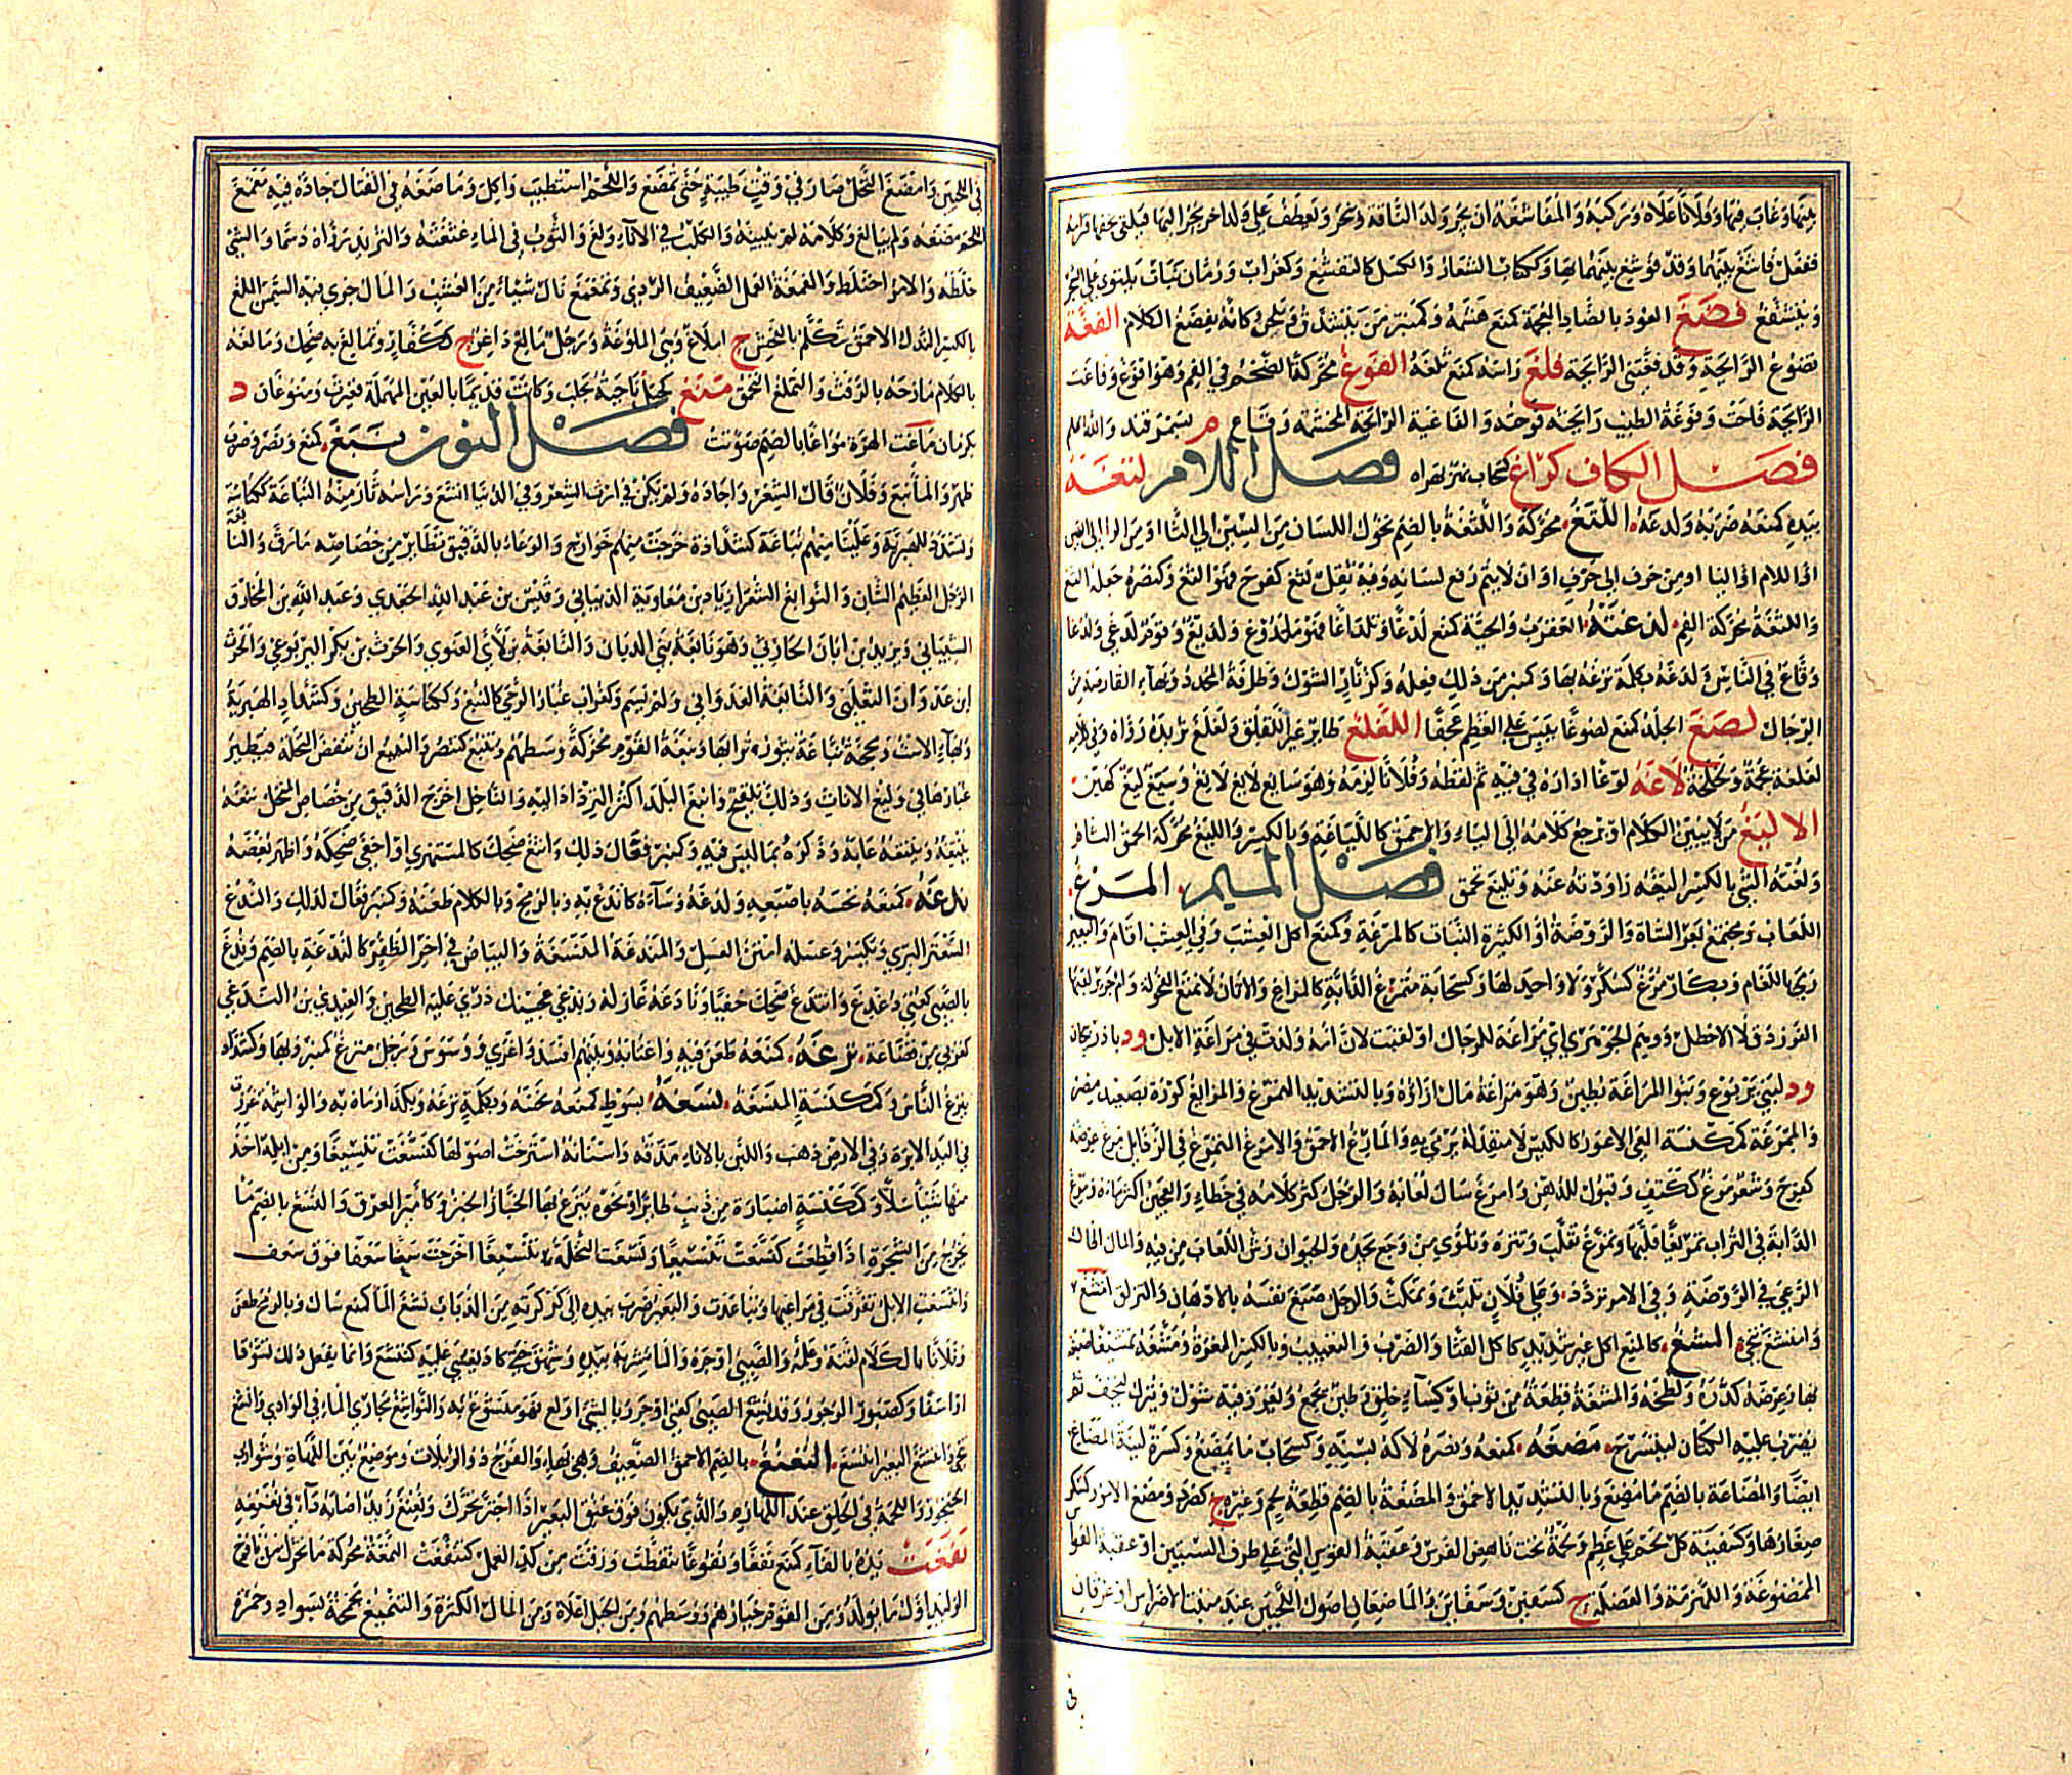 بينهما وغاب فيها وفلانا علاه وركبه والمفاشغة ان يجر ولد الناقة وينحر وتعطف على ولد اخر يجر اليها فيلقى تحتها فترأمه
وينشفغ فضغ العود بالضاد المعجمة كمنع هشمه وكمنبر من يتشدق ويلحن كأنه يفضغ الكلام الفغة
تضوع الرائحة وقد فغتنى الرائحة فلغ راسه كمنع ثلغه الفوغ محركة الضخم في الفم وهو افوغ وفاغت
الرائحة فاحت وفوغة الطيب رائحته فوحته والفاغية الرائحة المخشمة وفاغ م بسمرقند والله اعلم
فصل الكاف كراغ كسحاب نهر بهراه فصل اللام لتغه
بيده كمنعه ضربه ولدغه اللثغ محركة واللثغة بالضم تحول اللسان من السين الى الثاء او من الراء الى الغين
او اللام او الياء او من حرف الى حرف او ان لا يتم رفع لسانه وفيه ثقل لثغ كفرح فهو الثغ وكنصره جعله الثغ
واللثغة محركة الفم لدغته العقرب والحية كمنع لدغا وتلداغا فهو ملدوغ ولديغ وقوم لدغى ولدغا
وقاع في الناس ولدغه بكلمة نزغه بها وكمنبر من ذلك فعله وكزنار الشوك وطرفه المحدد وبهاء القارصة من
الرجال لصغ الجلد كمنع لصوغا يبس على العظم عجفا اللغلغ طائر غير اللقلق ولغلغ ثريده رواه وفي كلامه
لغلغة عجمة ولخلخة لاغه لوغا اداره في فيه ثم لفظه وفلانا لزمه وهو سائغ لائغ وسيغ ليغ كهين
الاليغ من لا يبين الكلام او يرجع كلامه الى الياء والاحمق كاللياغة وبالكسر والليغ محركة الحمق التام
ولغته الشئ بالكسر اليغه راودته عنه وتليغ تحمق فصل الميم المرغ
اللعاب ويجتمع بعر الشاة والروضة او الكثيرة النبات كالمرغة وكمنع اكل العشب وفي العشب اقام والبعير
رمى باللغام وبكار مرغ كسكر ولا واحد لها وكسحابة متمرغ الدابة كالمراغ والاتان لا تمنع الفحولة
الفرزدق لا الاخطل ووهم الجوهري اي مراغة للرجال او لقبت لان امه ولدت في مراغة الابل ود باذربيجان
ود لبني يربوع وبنو المراغة بطين وهو مراغة مال ازاؤه وبالتشديد المتمرغ والمرايغ كورة بصعيد مصر
والممرغة كمكنسة المعى الاعور كالكيس لا منفذ له يرمى به والمارغ الاحمق والامرغ المتمرغ في الرذائل مرغ عرضه
كفرح وشعر مرغ ككتف قبول للدهن وامرغ سال لعابه والرجل كثر كلامه في خطاء والعجين اكثر ماءه ومرغ
الدابة في التراب تمريغا قلبها وتمرغ تقلب وتنزه وتلوى من وجع يجده والحيوان رش اللعاب من فيه والمال اطال
الرعي في الروضة وفي الامر تردد وعلى فلان تلبث وتمكث والرجل صبغ نفسه بالادهان والتزلق
المشغ كالمنع اكل غير شديد كاكل القثاء والضرب والتعييب وبالكسر المغرة ومشغه تمشيغا صبغه
بها وعرضه كدره ولطخه والمشغة قطعة من ثوب او كساء خلق وطين يجمع ويغرز فيه شوك ويترك ليجف ثم
يضرب عليه الكتان ليتسرح مضغه كمنعه ونصره لاكه بسنه وكسحاب ما يمضغ وكسرة لينة المضاغ
ايضا والمضاغة بالضم ما مضغ وبالتشديد الاحمق والمضغة بالضم قطعة لحم وغيره ج كصرد ومضغ الامور كسكر
صغارها وكسفينة كل لحم على عظم ولحمة تحت ناهض الفرس وعقبة القوس التي على طرف السيتين او عقبة القواس
الممضوغة واللهزمة والعضلة ج كسفين وسفائن والماضغان اصول اللحيين عند منبت الاضراس او عرقان
في
في اللحيين وامضغ النخل صار في وقت طيبه حتى تمضغ واللحم استطيب واكل وماضغه في القتال جاده فيه مغمغ
اللحم مضغه ولم يبالغ وكلامه لم يبينه والكلب في الاناء ولغ والثوب في الماء غثغثه والثريد رواه دسما والشئ
خلطه والامر اختلط والمغمغة العمل الضعيف الردي وتمغمغ نال شيئا من العشب والمال جرى فيه السمن الملغ
بالكسر النذل الاحمق يتكلم بالفحش ج املاغ وهي الملوغة ورجل مالغ داعر ج ككفار وتمالغ به ضحك ومالغه
بالكلام مازحه بالرفث والتملغ التحمق منغ كجبل ناحية بحلب وكانت قديما بالعين المهملة فغيرت ومنوغان د
بكرمان ماغت الهرة مواغا بالضم صوتت فصل النون نبغ كمنع ونصر وضرب
ظهر والماء نبع وفلان قال الشعر واجاده ولم يكن في ارث الشعر وفي الدنيا اتسع وراسه ثار منه النباغة ككناسة
وتشدد للهبرية وعلينا منهم نباغة كشدادة خرجت منهم خوارج والوعاء بالدقيق تطاير من خصاصه ما رق والنابغة
الرجل العظيم الشان والنوابغ الشعراء زياد بن معاوية الذبياني وقيس بن عبد الله الجعدي وعبد الله بن المخارق
الشيباني ويزيد بن ابان الحارثي وهو نابغة بني الديان والنابغة بن لأي الغنوي والحرث بن بكر اليربوعي والحرث
ابن عدوان التغلبي والنابغة العدواني ولم يسم وكغراب غبار الرحى كالنبغ وككناسة الطحين وكشداد الهبرية
وبهاء الاست ومحجة نباغة يثور ترابها ونبغة القوم محركة وسطهم وتنبغ كتنصر والتنبيغ ان تنفض النخلة فيطير
غبارها في وليع الاناث وذلك تلقيح وانبغ البلد اكثر الترداد اليه والناخل اخرج الدقيق من خصاص المنخل نتغه
ينتغه وينتغه عابه وذكره بما ليس فيه وكمنبر فعال ذلك وانتغ ضحك كالمستهزئ او اخفى ضحكه واظهر بعضه
ندغه كمنعه نخسه باصبعه ولدغه وساءه كاندغ به وبالرمح وبالكلام طعنه وكمنبر فعال لذلك والندغ
السعتر البري ويكسر وعسله امتن العسل والمندغة المنسغة والبياض في اخر الظفر كالندغة بالضم وندغ
بالصبي كعني دغدغ وانتدغ ضحك خفيا ونادغه غازله وندغي عجينك ذري عليه الطحين والعبدي بن الندغي
كعربي من قضاعة نزغه كمنعه طعن فيه واغتابه وبينهم افسد واغرى ووسوس ورجل منزغ كمنبر وبهاء وكشداد
ينزغ الناس وكمكنسة المنسغة نسغه بسوط كمنعه نخسه وبكلمة نزغه وبكذا رماه به والواشمة غرزت
في اليد الابرة وفي الارض ذهب واللبن بالماء مذقه واسنانه استرخت اصولها كنسغت تنسيغا ومن ابله اخذ
منها شيئا سلا وكمكنسة اضبارة من ذنب طائر او نحوه ينزغ بها الخباز الخبز وكامير العرق والنسغ بالضم ما
يخرج من الشجرة اذا قطعت كنسغت تنسيغا ونسغت النخلة تنسيغا اخرجت سعفا فوق سعف
وانتسغت الابل تفرقت في مراعيها وتباعدت والبعير ضرب بيده الى كركرته من الذباب نشغ الماء كمنع سال وبالرمح طعن
وفلانا بالكلام لقنه وعلمه والصبي اوجره والماء شربه بيده وشهق حتى كاد يغشى عليه كتنشغ وانما يفعل ذلك تشوقا
او اسفا وكصبور الوجور وقد نشغ الصبي كعني اوجر وبالشئ اولع فهو منشوغ به والنواشغ مجاري الماء في الوادي وانشغ
تنحى وانتشغ البعير انتسغ النغنغ بالضم الاحمق الضعيف وهي بهاء والفرج ذو الربلات وموضع بين اللهاة وشوارب
الحنجور واللحمة في الحلق عند اللهازم والذي يكون فوق عنق البعير اذا اجتر تحرك ونغنغ زيد اصابه داء في نغنغه
نفغت يده بالفاء كمنع نفغا ونفوغا تنفطت ورقت من كد العمل كتنفغت النمغة محركة ما تحرك من يافوخ
الوليد اول ما يولد ومن القوم خيارهم ووسطهم ومن الجبل اعلاه ومن المال الكثرة والتنميغ مجمجة بسواد وحمرة